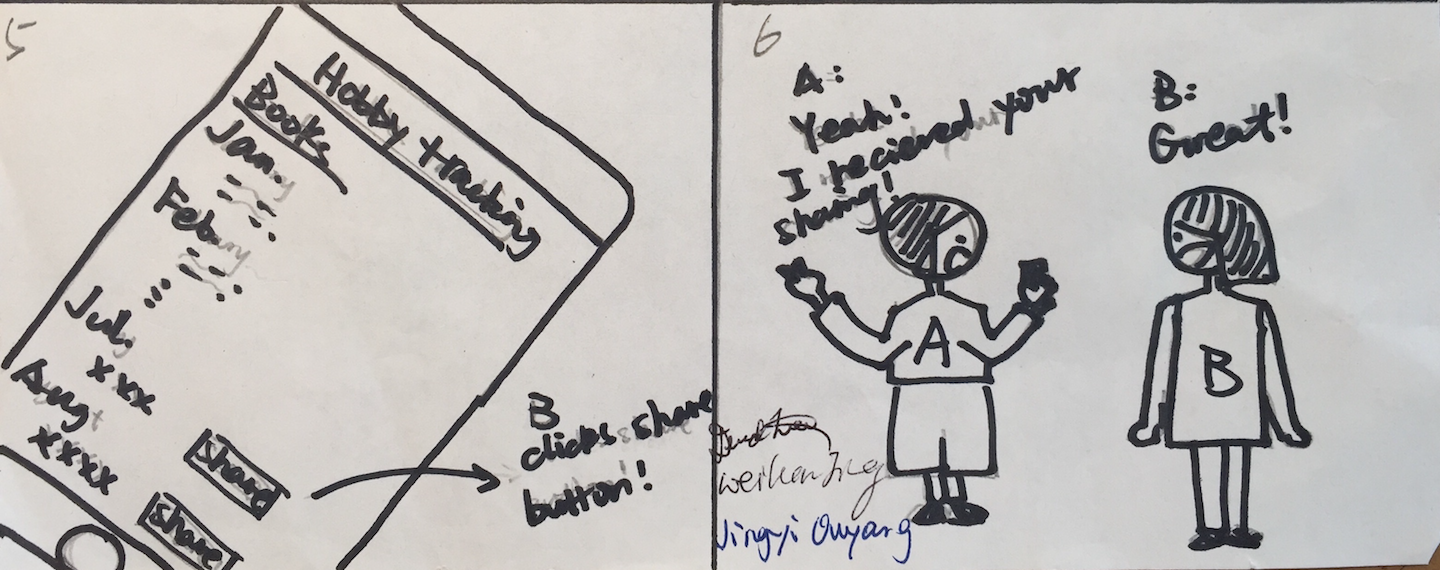 5
Hobby tracking
Books
Jan.
Feb
...
July
xxx
Aug
xxxx
share
share
B
clicks share
button!
6
A:
Yeah!
I recieved your
sharing!
B:
Great!
A
B
Jingyi Ouyang